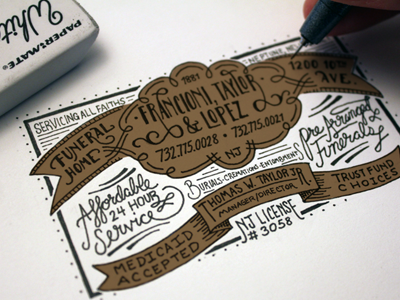 PAPER:MATE®
White
SERVICING ALL FAITHS
NEPTUNE, NJ
1881
FUNERAL
HOME
FRANCIONI, TAYLOR
& LOPEZ
732.775.0028 • 732.775.0021
NJ
1200 10TH
AVE.
Affordable
24 HOUR
Service
BURIALS • CREMATIONS • ENTOMBMENTS
Pre Arranged
Funerals
MEDICAID
ACCEPTED
THOMAS W. TAYLOR JR.
MANAGER/DIRECTOR
TRUST FUND
CHOICES
NJ LICENSE
# 3058